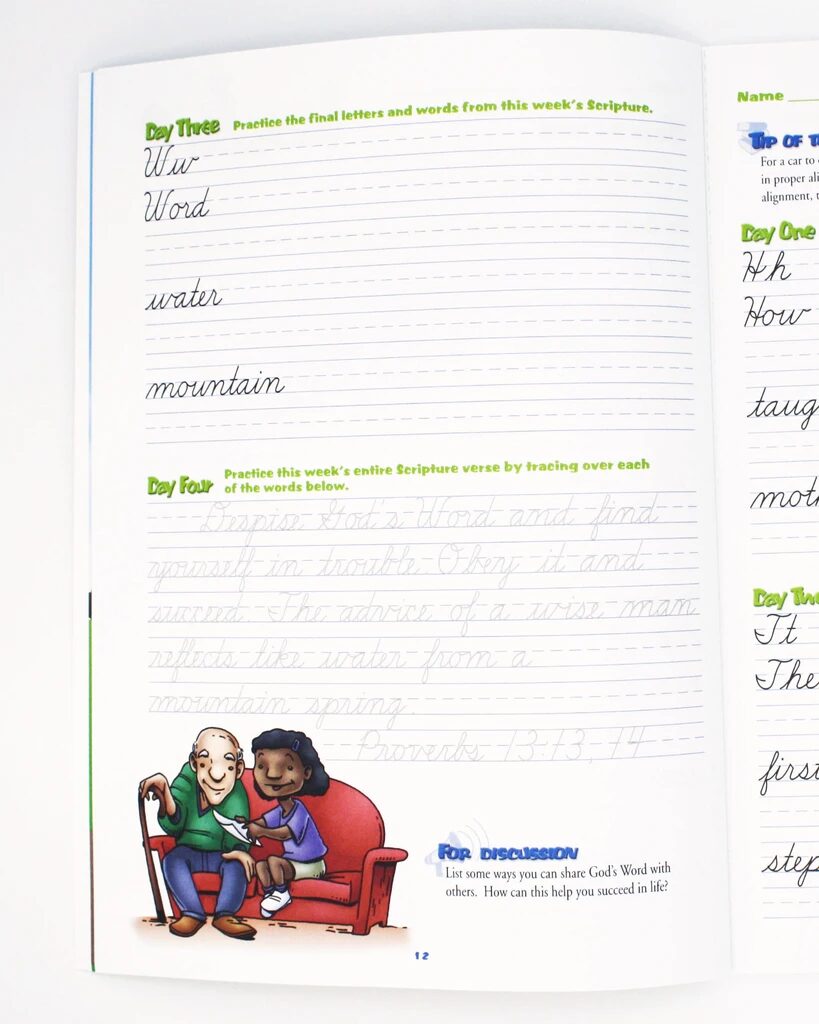 Day Three Practice the final letters and words from this week's Scripture.
Ww
Word
water
mountain
Day Four Practice this week's entire Scripture verse by tracing over each
of the words below.
Despise God's Word and find
yourself in trouble. Obey it and
succeed. The advice of a wise man
reflects like water from a
mountain spring.
Proverbs 13:13, 14
For discussion
List some ways you can share God's Word with
others. How can this help you succeed in life?
12
Name
Tip of
For a car to
in proper
alignment,
Day One
Hh
How
Day Two
Tt
The
first
step